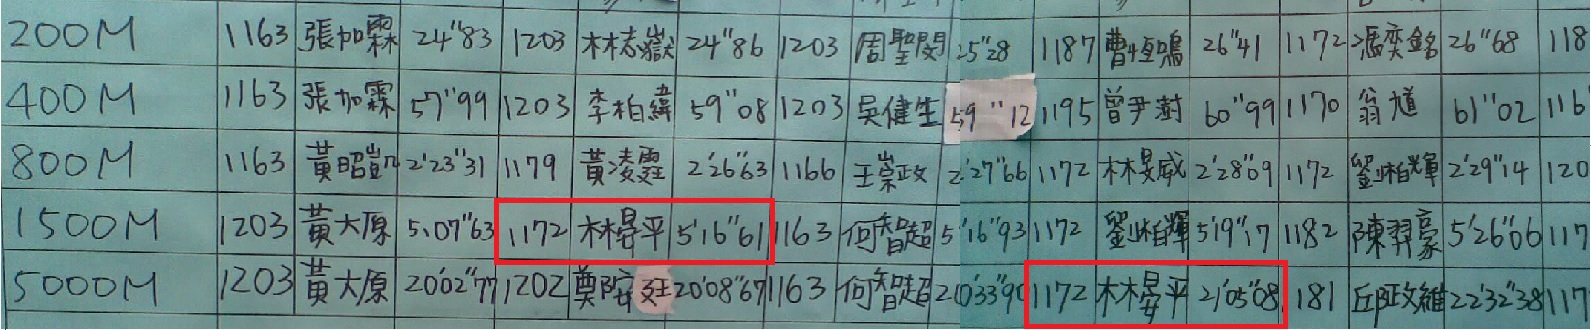 200M 1163 張加霖 24"83 1203 林志嶽 24"86 1203 周聖閔 25"28 1187 曹恆鳴 26"41 1172 馮奕銘 26"68 118
400M 1163 張加霖 57"99 1203 李柏緯 59"08 1203 吳健生 59"12 1195 曾尹澍 60"99 1170 翁馗 61"02 116
800M 1163 黃昭凱 2'23"31 1179 黃凌霆 2'26"63 1166 王崇政 2'27"66 1172 林晏威 2'28"09 1172 劉柏輝 2'29"14 120
1500M 1203 黃大原 5'07"63 1172 林晏平 5'16"61 1163 何智超 5'16"93 1172 劉柏輝 5'19"17 1182 陳羿豪 5'26"06 117
5000M 1203 黃大原 20'02"77 1202 鄭安廷 20'08"67 1163 何智超 20'33"90 1172 林晏平 21'05"08 1181 丘政維 22'32"38 117